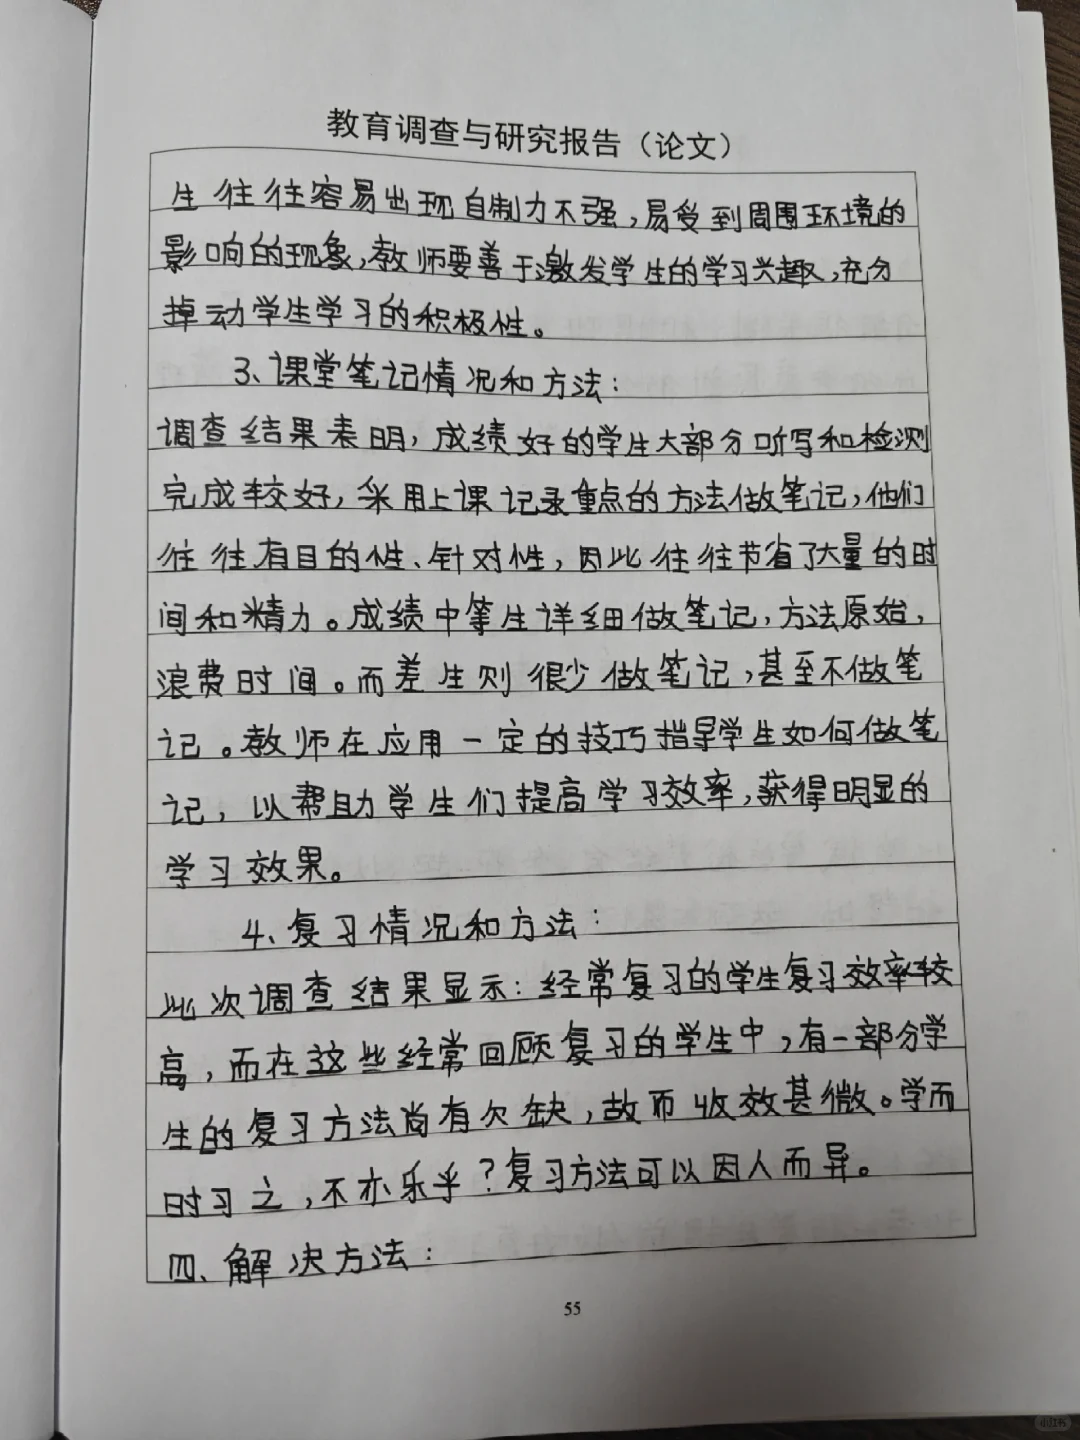 教育调查与研究报告（论文）
生往往容易出现自制力不强，易受到周围环境的
影响的现象，教师要善于激发学生的学习兴趣，充分
掉动学生学习的积极性。
3、课堂笔记情况和方法：
调查结果表明，成绩好的学生大部分听写和检测
完成较好，采用上课记录重点的方法做笔记，他们
往往有目的性、针对性，因此往往节省了大量的时
间和精力。成绩中等生详细做笔记，方法原始，
浪费时间。而差生则很少做笔记，甚至不做笔
记。教师在应用一定的技巧指导学生如何做笔
记，以帮助学生们提高学习效率，获得明显的
学习效果。
4、复习情况和方法：
此次调查结果显示：经常复习的学生复习效率较
高，而在这些经常回顾复习的学生中，有一部分学
生的复习方法尚有欠缺，故而收效甚微。学而
时习之，不亦乐乎？复习方法可以因人而异。
四、解决方法：
55
小红书